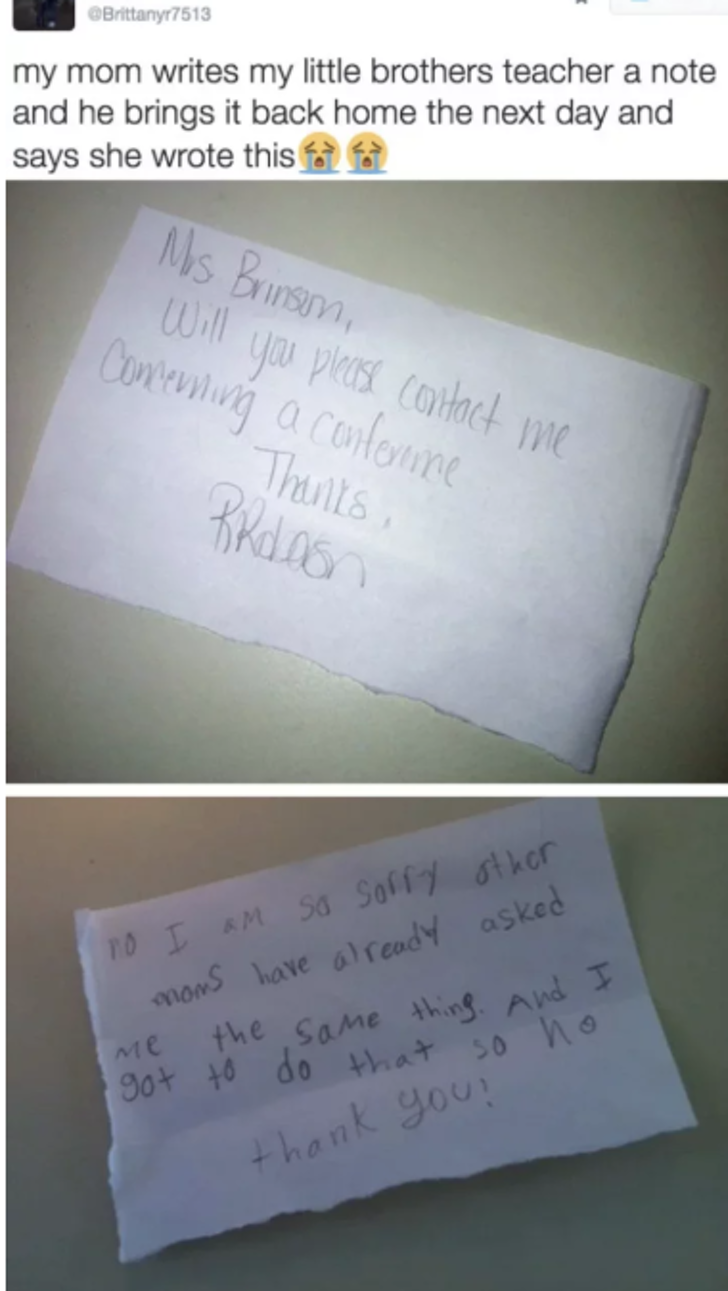 @Brittanyr7513
my mom writes my little brothers teacher a note
and he brings it back home the next day and
says she wrote this😭😭
Mrs Brinson,
Will you please contact me
Concerning a conference
Thanks,
no I am so sorry other
moms have already asked
me the same thing. And I
got to do that so no
thank you!